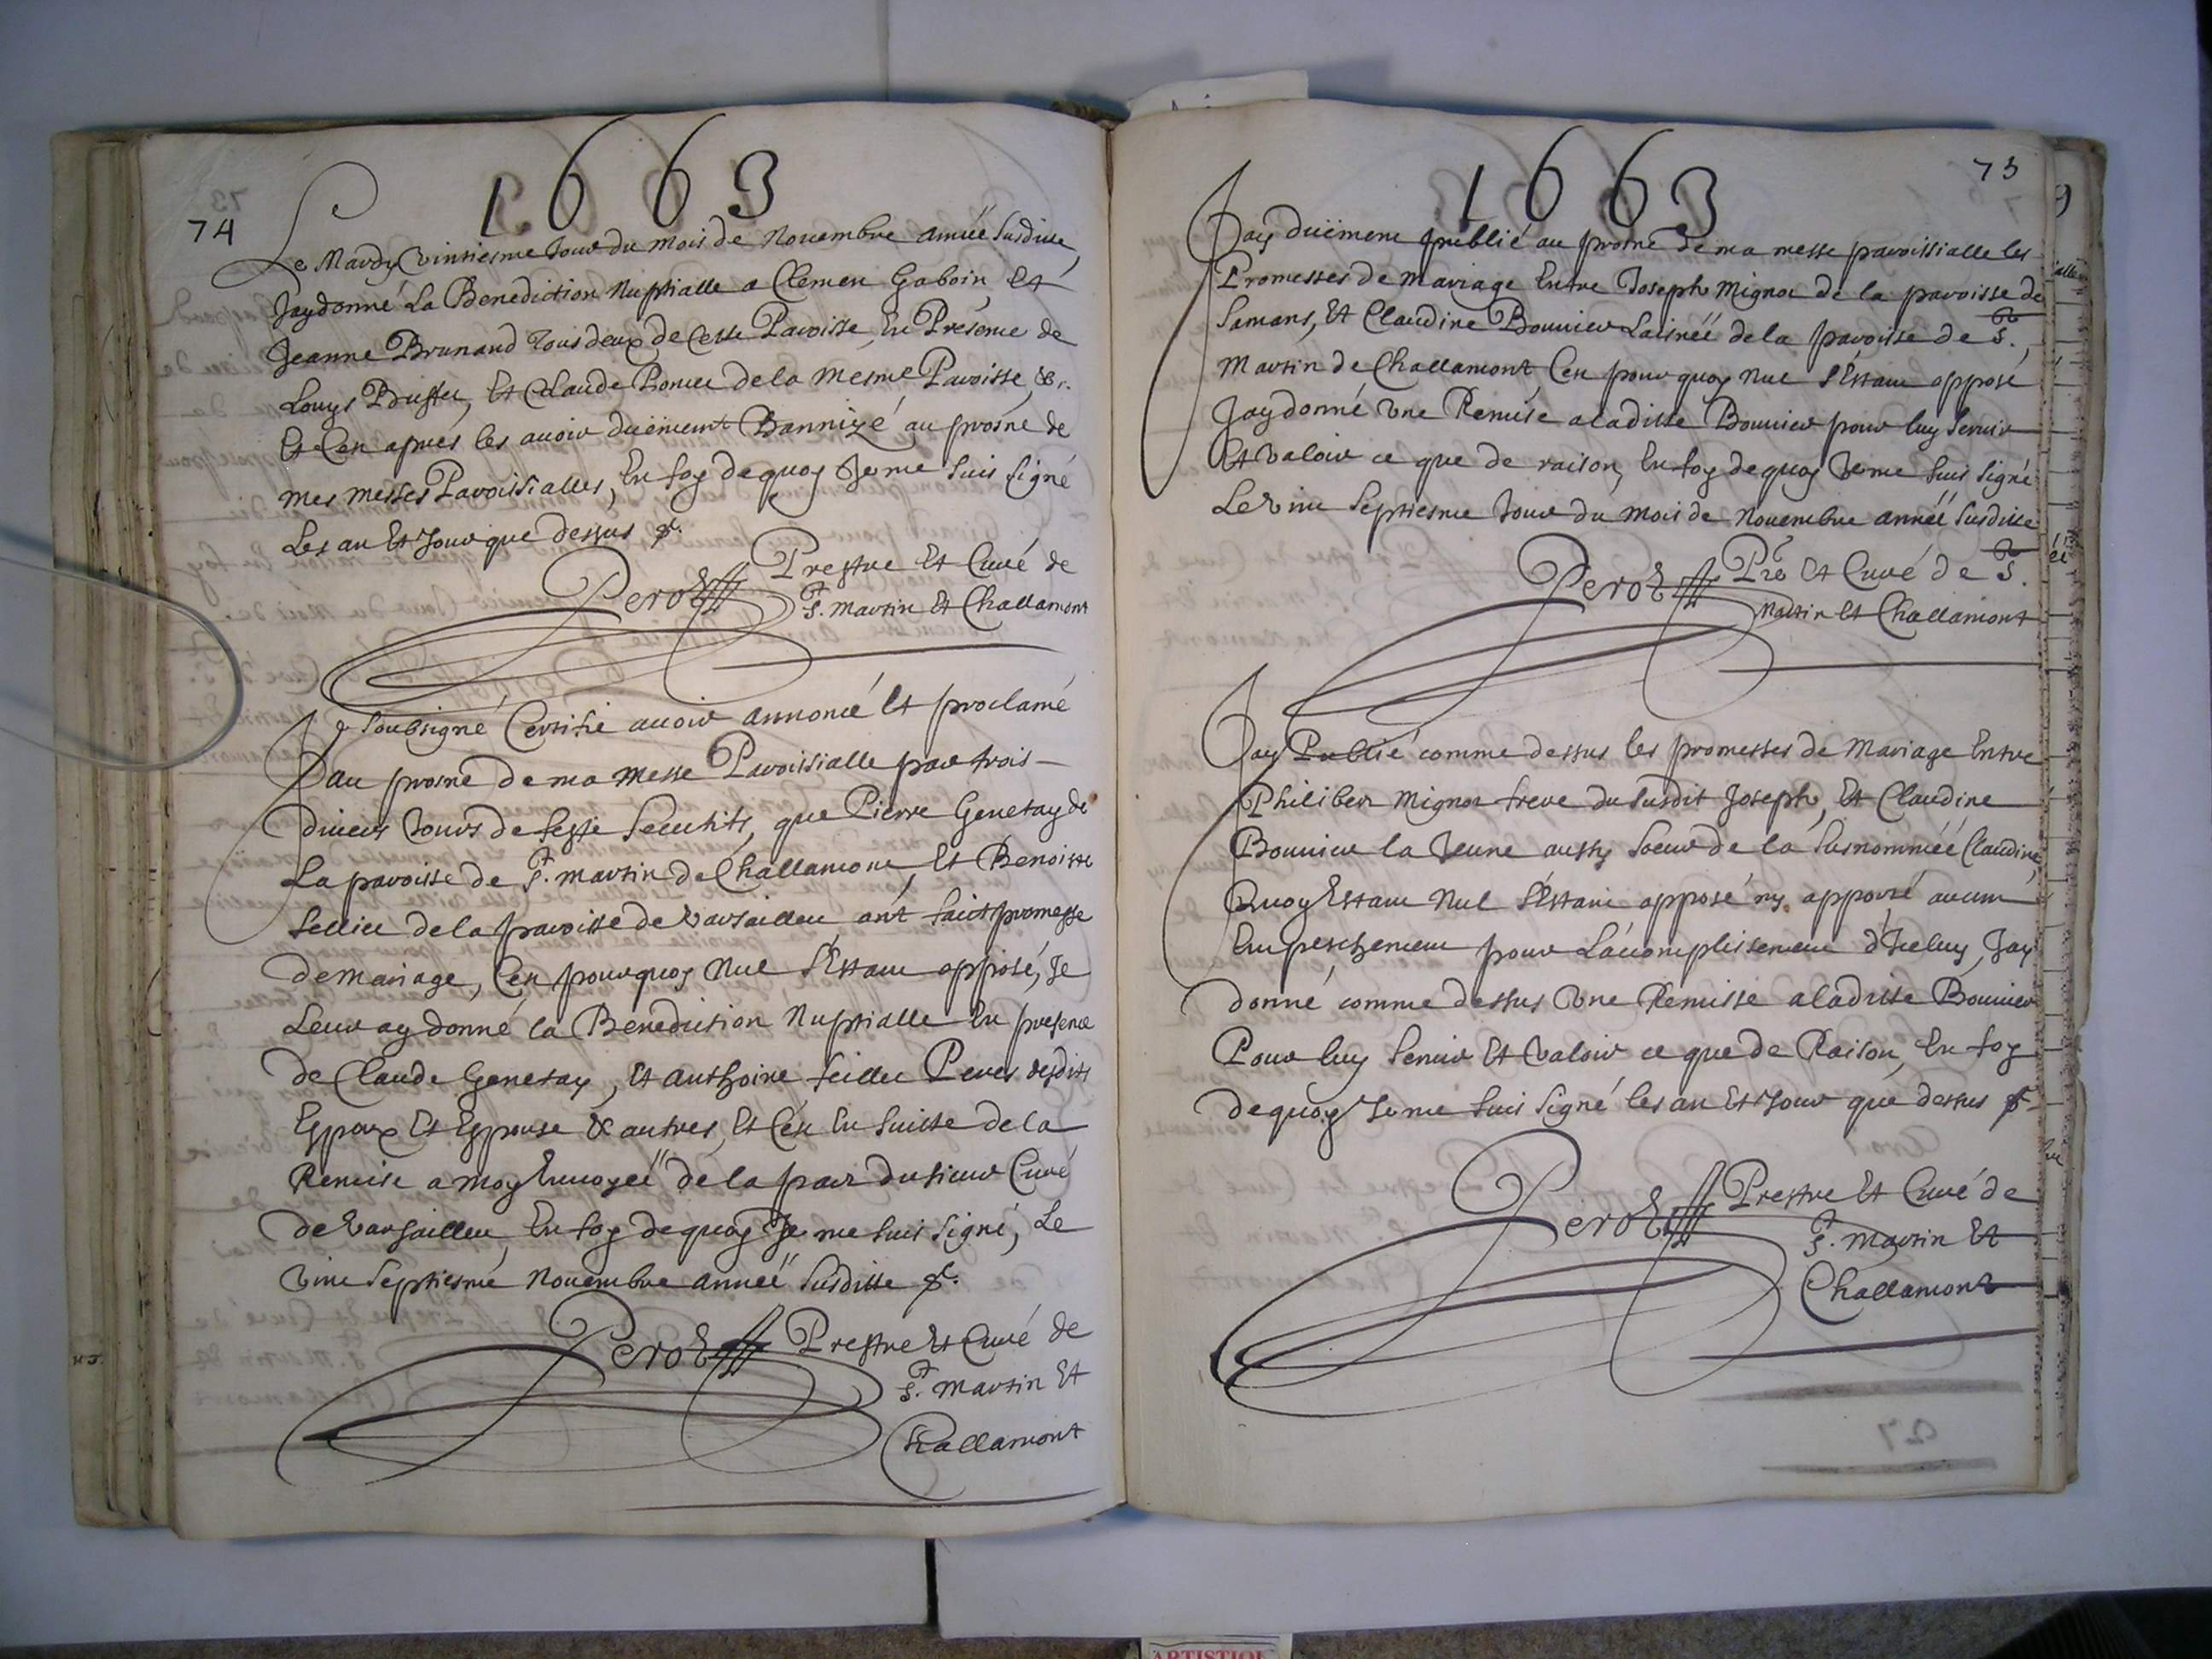 1663
74
Le Mardy vintiesme Jour du mois de Nouembre année susditte,
Jay donné La Benediction Nuptialle a Clemen Gaboin, Et
Jeanne Brunand tous deux de Cette Paroisse, En Presence de
Louys Et Claude Poncet de la Mesme Paroisse, &c.
Et C'est apres les auoir duëment Bannizé au prosne de
mes messes Paroissialles, En foy dequoy Je me suis signé
Les an Et Jour que dessus
Perost Prestre Et Curé de
St. Martin Et Challamont
Je soubsigné Certifie auoir annoncé Et proclamé
au prosne de ma Messe Paroissialle par trois
diuers Jours de feste que Pierre Genetay de
La paroisse de St. martin de Challamont, Et Benoiste
de la paroisse de Varsailleu, ont faict promesse
de mariage, C'est pourquoy Nul s'Estant opposé, Je
Leur ay donné la Benediction Nuptialle En presence
de Claude Genetay, Et Anthoine Peres desdits
Espoux Et Espouse & autres, Et C'est En suitte de la
Remise a moy Enuoyéë de la part du sieur Curé
de Varsailleu, En foy dequoy Je me suis signé, Le
vint Septiesme Nouembre annéë susditte
Perost Prestre Et Curé de
St. Martin Et
Challamont
1663
73
Jay duëment publié au prosne de ma messe paroissialle les
Promesses de Mariage Entre Joseph Mignot de la paroisse de
Samans, Et Claudine Bouuier Laisnéë de la paroisse de St.
Martin de Challamont C'est pourquoy Nul s'Estant opposé
Jay donné vne Remise a laditte Bouuier pour luy seruir
Et Valoir ce que de raison, En foy dequoy Je me suis signé
Le vint Septiesme Jour du mois de Nouembre annéë susditte
Perost Pre Et Curé de St.
Martin Et Challamont
Jay Publié comme dessus les promesses de Mariage Entre
Philibert Mignot frere du susdit Joseph, Et Claudine
Bouuier la Jeune aussy soeur de la susnomméë Claudine,
Quoy Estant Nul s'Estant opposé ny apporté aucun
Empeschement pour L'accomplissement d'Iceluy, Jay
donné comme dessus vne Remisse a laditte Bouuier
Pour luy seruir Et Valoir ce que de Raison, En foy
dequoy Je me suis signé les an Et Jour que dessus
Perost Prestre Et Curé de
St. Martin Et
Challamont